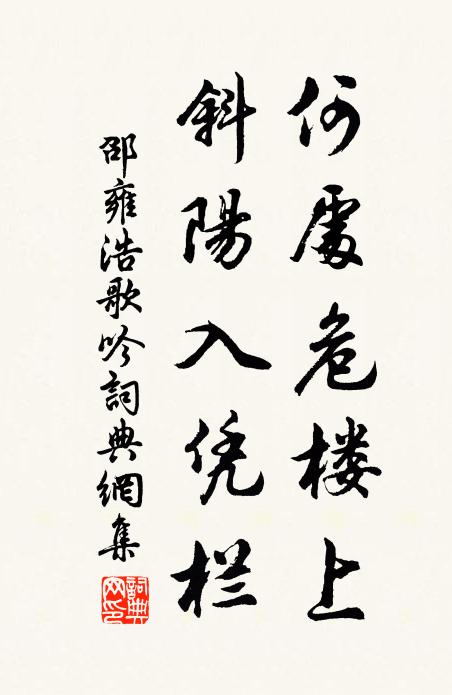 何處危楼上
斜陽入凭栏
邵雍浩歌吟詞典網集
詞典網印